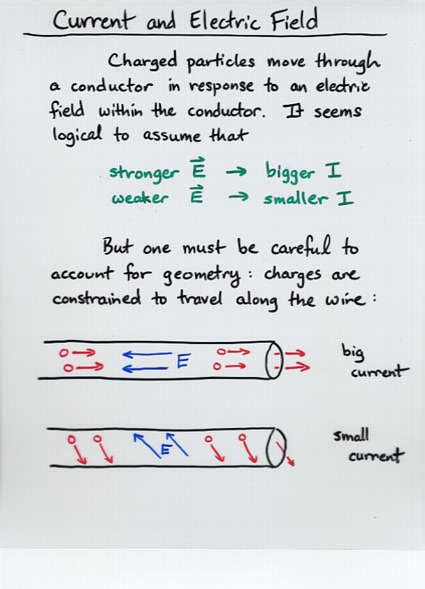 Current and Electric Field
Charged particles move through
a conductor in response to an electric
field within the conductor. It seems
logical to assume that
stronger E → bigger I
weaker E → smaller I
But one must be careful to
account for geometry : charges are
constrained to travel along the wire :
E
big
current
E
small
current